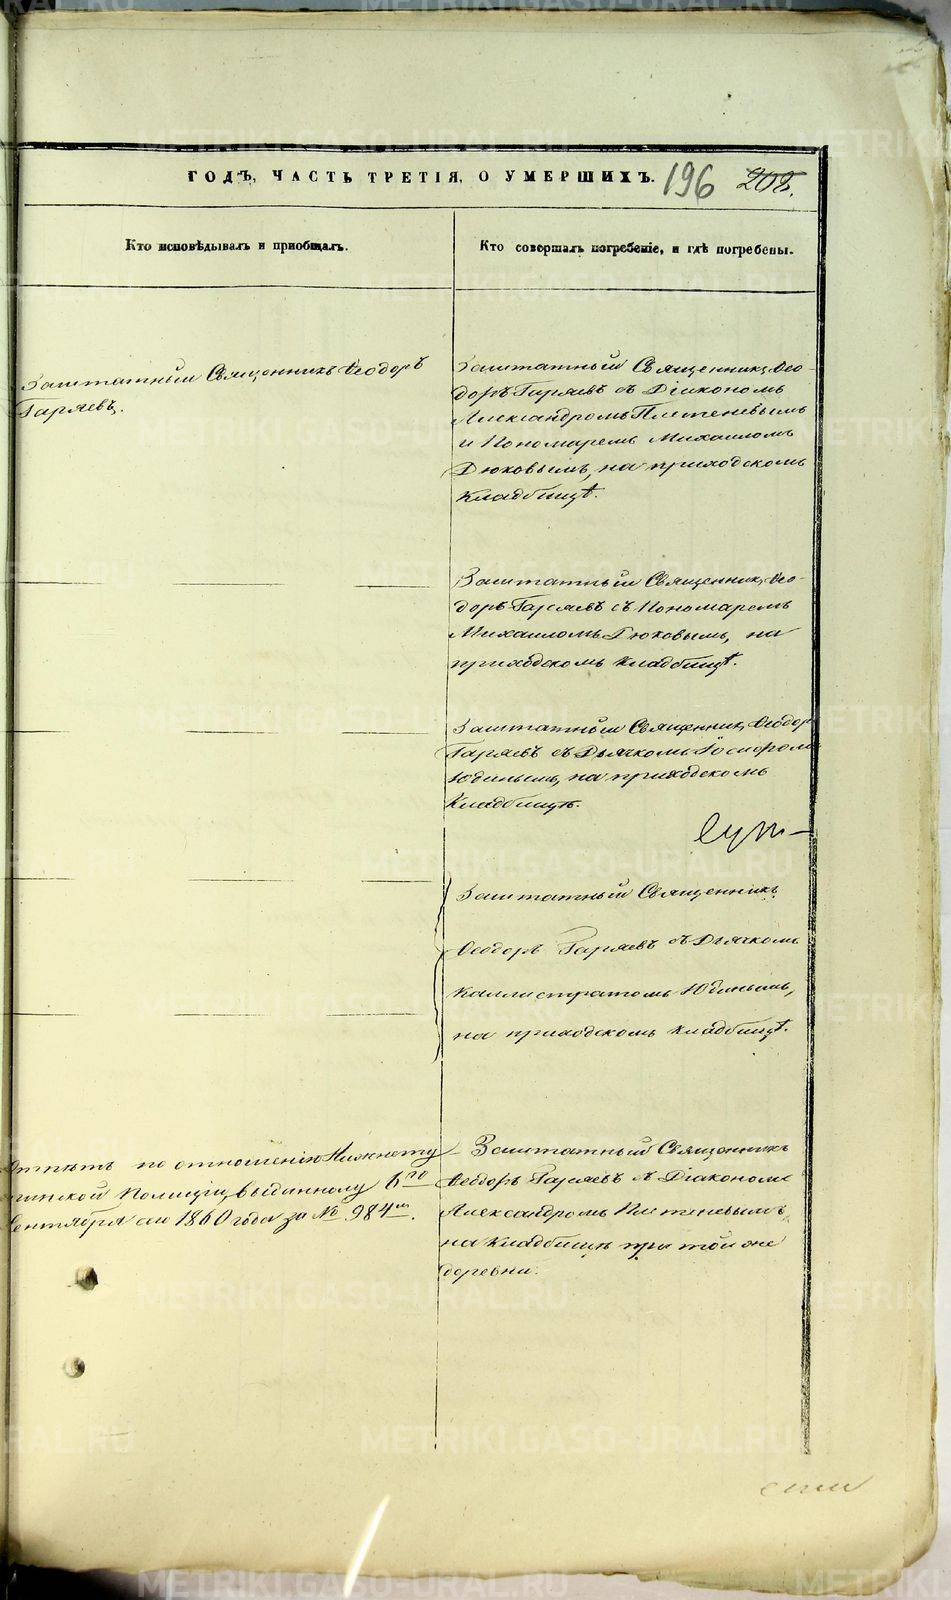 ГОДЪ, ЧАСТЬ ТРЕТІЯ, О УМЕРШИХЪ.
196 208.
Кто исповѣдывалъ и пріобщалъ.
Кто совершалъ погребеніе, и гдѣ погребены.
Заштатный Священникъ Ѳеодоръ
Гаряевъ.
Заштатный Священникъ Ѳео-
доръ Гаряевъ съ Діакономъ
Александромъ Плетеневымъ
и Пономаремъ Михаиломъ
Дюковымъ, на приходскомъ
кладбищѣ.
Заштатный Священникъ Ѳео-
доръ Гаряевъ съ Пономаремъ
Михаиломъ Дюковымъ, на
приходскомъ кладбищѣ.
Заштатный Священникъ Ѳеодоръ
Гаряевъ съ Дьячкомъ Іосифомъ
Юдинымъ, на приходскомъ
кладбищѣ.
Заштатный Священникъ
Ѳеодоръ Гаряевъ съ Дьячкомъ
Каллистратомъ Юдинымъ,
на приходскомъ кладбищѣ.
по отношенію
Полиціи, выданному 6го
Сентября сего 1860 года за № 984м.
Заштатный Священникъ
Ѳеодоръ Гаряевъ съ Діакономъ
Александромъ Плетеневымъ,
на кладбищѣ при той же
деревни.
METRIKI.GASO-URAL.RU